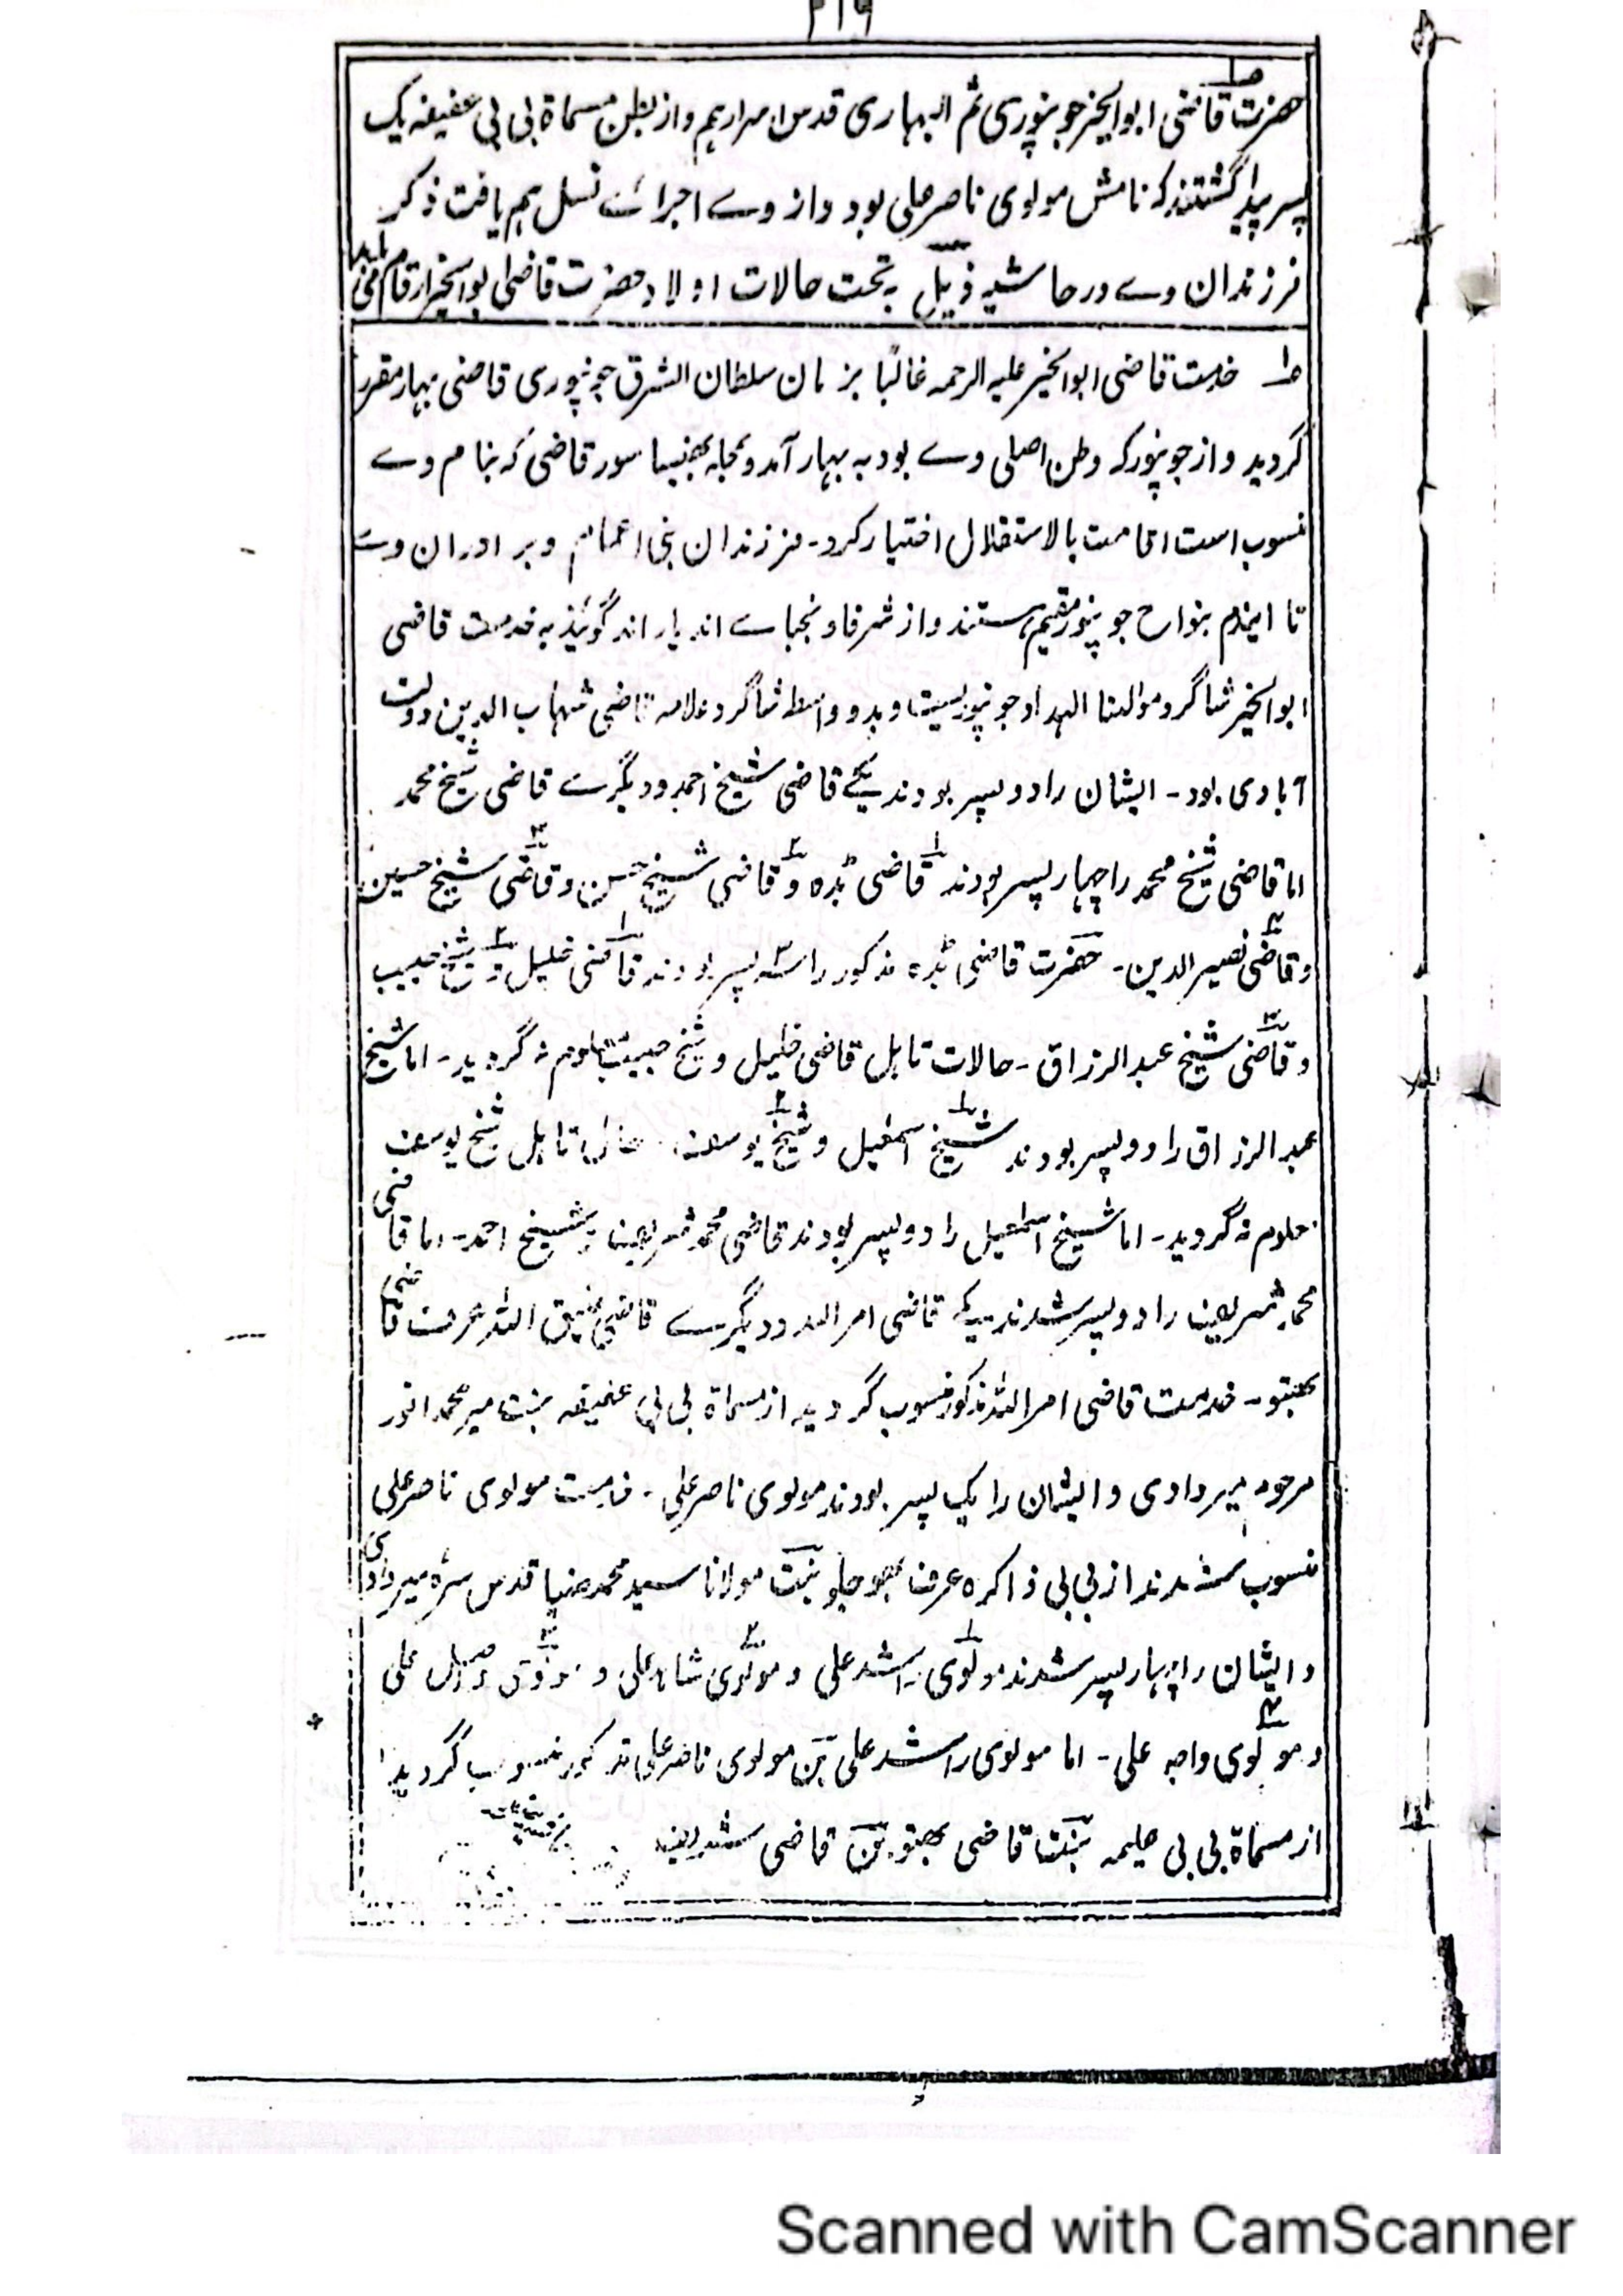 ۲۱۹
حضرت قاضی ابوالخیر جونپوری ثم البہاری قدس اسرارہم و از بطن مسماۃ بی بی عفیفہ یک
پسر پیدا گشتند کہ نامش مولوی ناصر علی بود و از وے اجراے نسل ہم یافت ذکر
فرزندان وے در حاشیہ ذیل بہ تحت حالات اولاد حضرت قاضی ابوالخیر ارقام می یابد
۱ خدمت قاضی ابوالخیر علیہ الرحمہ غالبًا بزمان سلطان الشرق جونپوری قاضی بہار مقرر
گردید و از جونپور کہ وطن اصلی وے بود بہ بہار آمد و بمحلہ بھنیسا سور قاضی کہ بنام وے
منسوب است اقامت بالاستقلال اختیار کرد - فرزندان بنی اعمام و برادران وے
تا ایندم بنواح جونپور مقیم ہستند و از شرفا و نجباے اندیار اند گویند بہ خدمت قاضی
ابوالخیر شاگرد مولٰنا الہداد جونپوریست و بدو واسطہ شاگرد علامہ قاضی شہاب الدین دولت
آبادی بود - ایشان را دو پسر بودند یکے قاضی شیخ احمد و دیگرے قاضی شیخ محمد
اما قاضی شیخ محمد را چہار پسر بودند ۱ قاضی بڈہ و ۲ قاضی شیخ حسن و ۳ قاضی شیخ حسین
و ۴ قاضی نصیر الدین - حضرت قاضی بڈہ مذکور را سہ پسر بودند ۱ قاضی خلیل و ۲ شیخ حبیب
و ۳ قاضی شیخ عبد الرزاق - حالات تاہل قاضی خلیل و شیخ حبیب معلوم نہ گردید - اما شیخ
عبد الرزاق را دو پسر بودند ۱ شیخ اسمٰعیل و ۲ شیخ یوسف - حال تاہل شیخ یوسف
معلوم نہ گردید - اما شیخ اسمٰعیل را دو پسر بودند قاضی محمد شریف و شیخ احمد - اما قاضی
محمد شریف را دو پسر شدند یکے قاضی امر اللہ و دیگرے قاضی اللہ عرف قاضی
بھبتو - خدمت قاضی امر اللہ مذکور منسوب گردید از مسماۃ بی بی عفیفہ بنت میر محمد انور
مرحوم میردادی و ایشان را یک پسر بودند مولوی ناصر علی - خدمت مولوی ناصر علی
منسوب شدند از بی بی ذاکرہ عرف بنت مولانا سید محمد ضیا قدس سرہ میردادی
و ایشان را چہار پسر شدند ۱ مولوی راشد علی و ۲ مولوی شاہد علی و ۳ علی
و ۴ مولوی واجد علی - اما مولوی راشد علی بن مولوی ناصر علی مذکور منسوب گردید
از مسماۃ بی بی حلیمہ بنت قاضی بھبتو بن قاضی شریف
Scanned with CamScanner